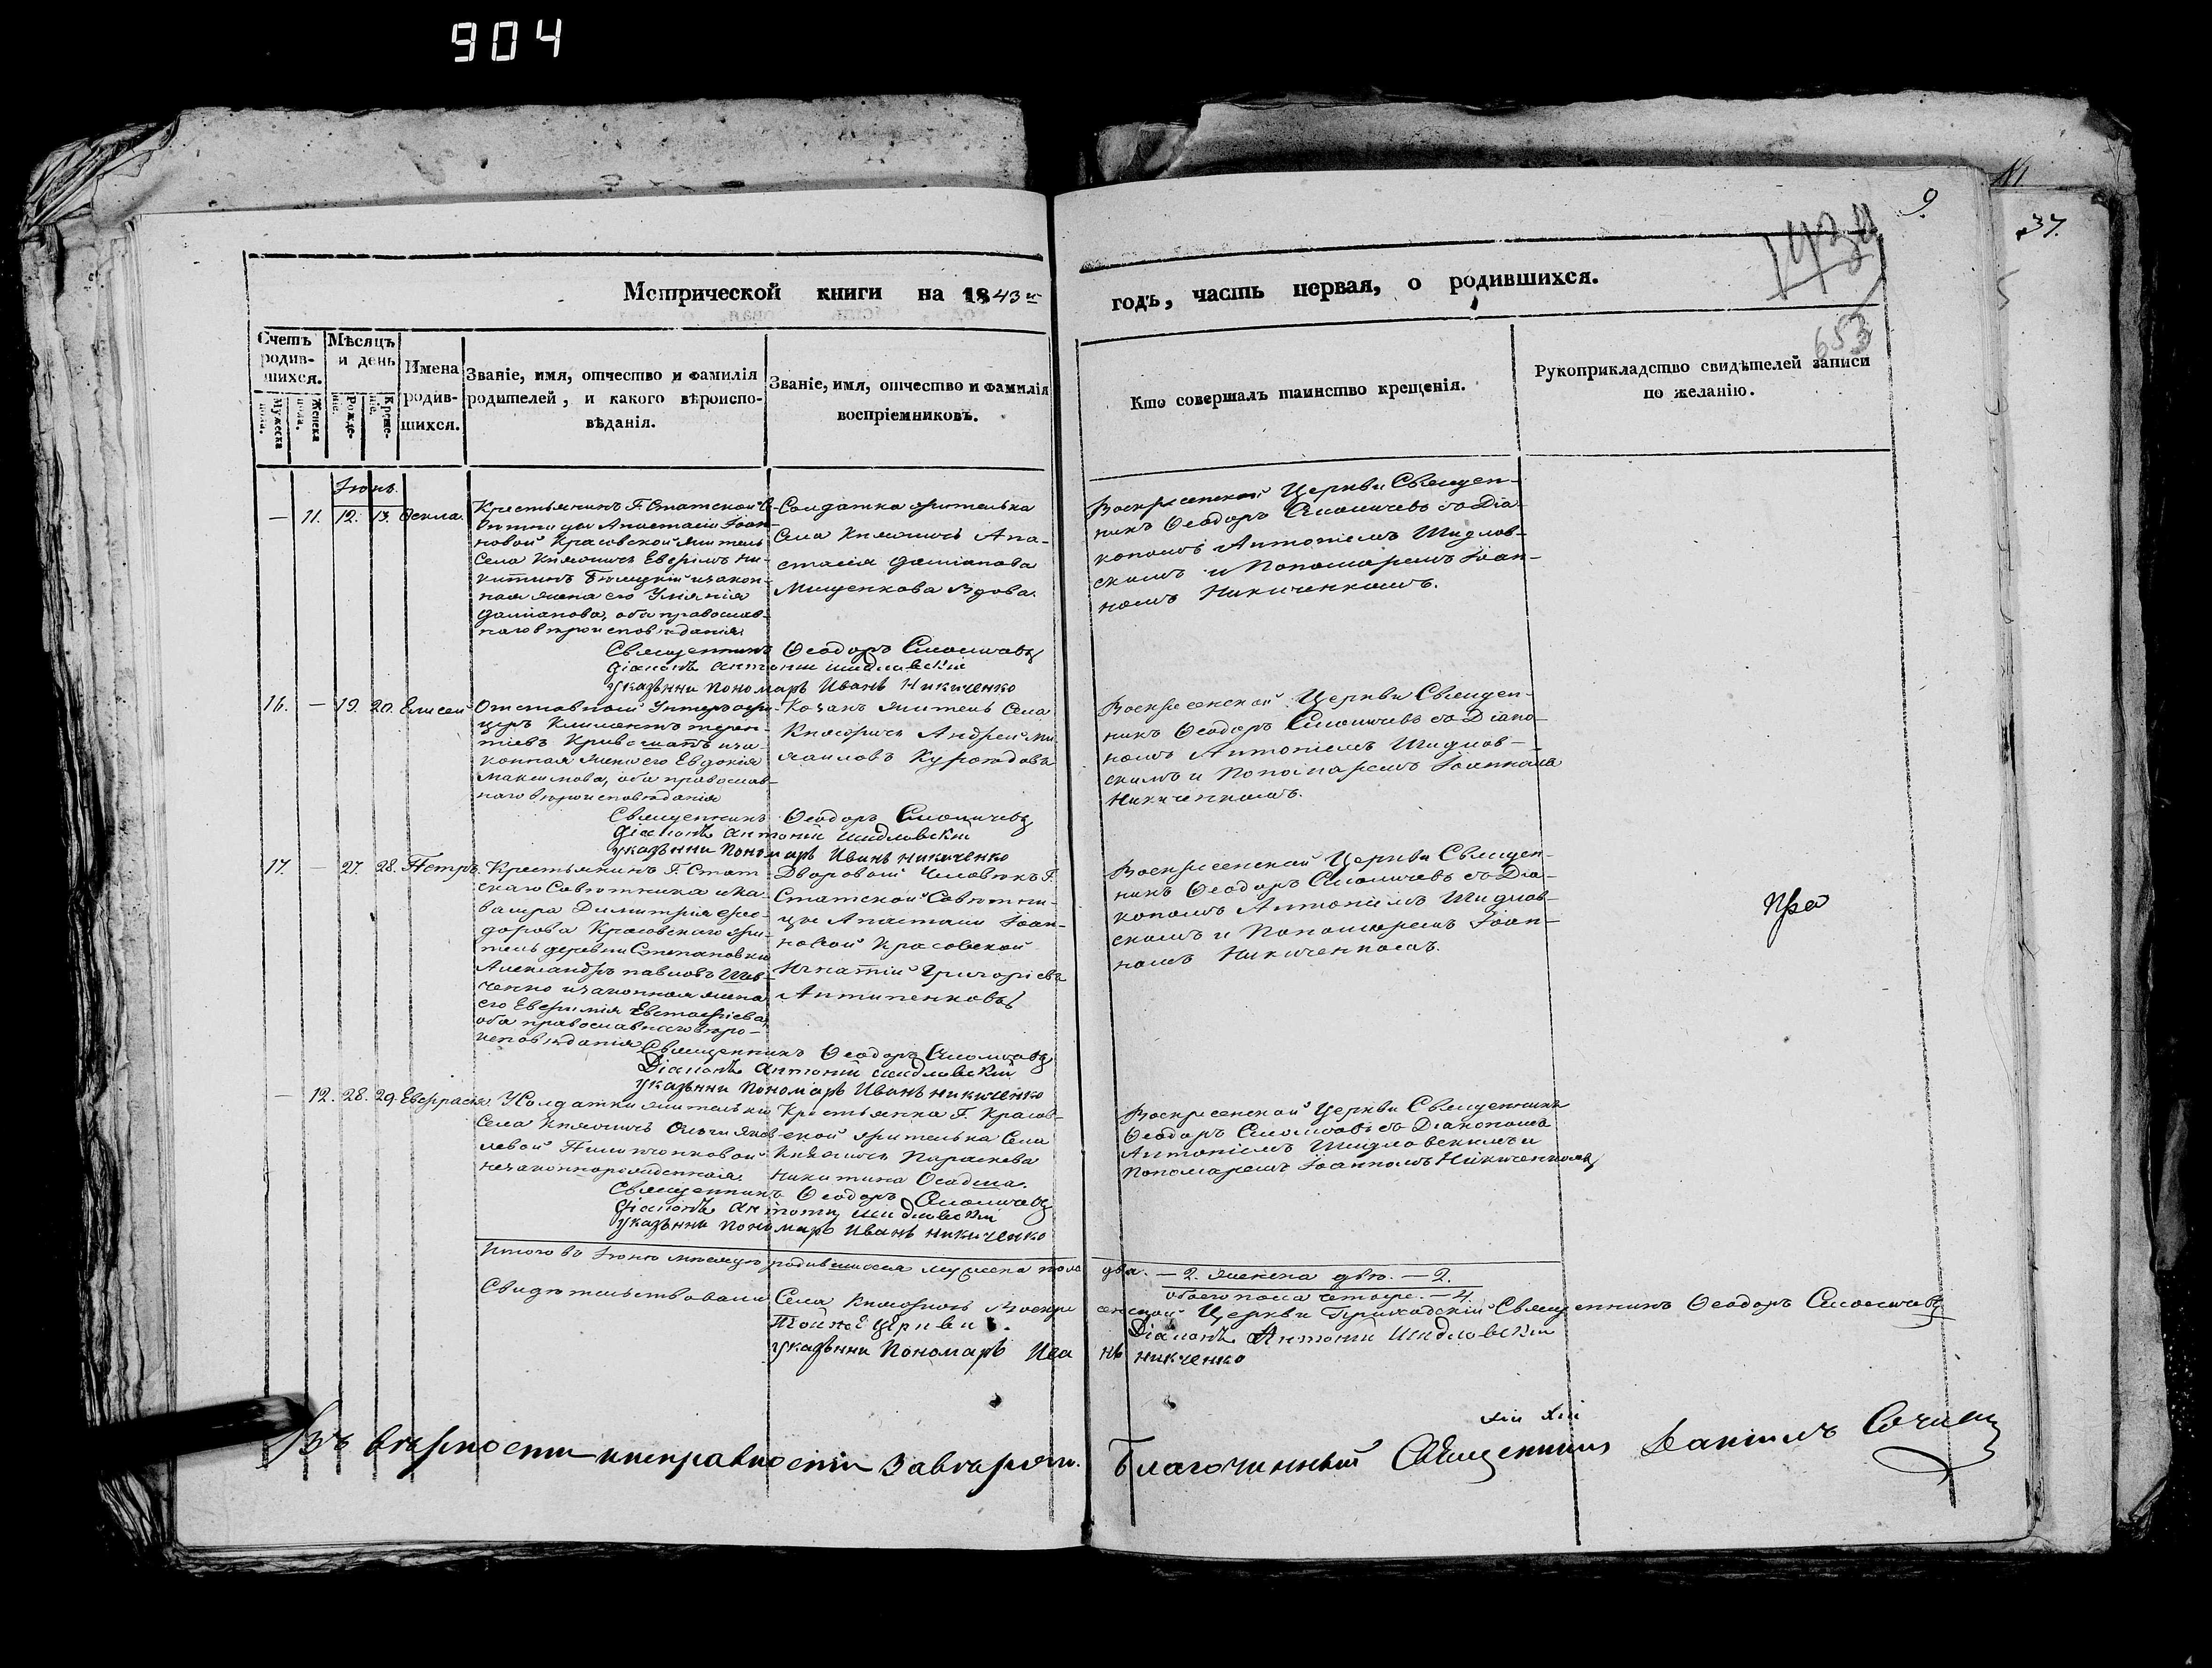 904
9.
37.
1434
653
Метрической книги на 1843й
годъ, часть первая, о родившихся.
Счетъ родив-шихся.
Мужеска пола.
Женска пола.
Мѣсяцъ и день
Рожде-нія.
Креще-нія.
Имена родив-шихся.
Званіе, имя, отчество и фамилія
родителей, и какого вѣроиспо-
вѣданія.
Званіе, имя, отчество и фамилія
воспріемниковъ.
Кто совершалъ таинство крещенія.
Рукоприкладство свидѣтелей записи
по желанію.
Іюнь
— 11. 12. 13. Ѳекла.
Крестьянинъ Г. Статской Со-
вѣтницы Анастасіи Іоан-
новой Красовской житель
Села Княжичъ Евфимъ Ни-
китинъ и закон-
ная жена его
Даміанова, оба православ-
наго вѣроисповѣданія
Солдатка жителька
Села Княжичъ Ана-
стасія Даміанова
Мищенкова Вдова.
Воскресенской Церкви Священ-
никъ Ѳеодоръ со Діа-
кономъ Антоніемъ Шидлов-
скимъ и Пономаремъ Іоан-
номъ Никиченкомъ.
Священникъ Ѳеодоръ
Діаконъ Антоній Шидловскій
указънни Пономарь Иванъ Никиченко
16. — 19. 20. Елисей
Отставной Унтеръ офи-
церъ Климентъ терен-
тіевъ и за-
конная жена его Евдокія
Максимова, оба православ-
наго вѣроисповѣданія
Козакъ житель Села
Княжичъ Андрей Ми-
хаиловъ
Воскресенской Церкви Священ-
никъ Ѳеодоръ со Діако-
номъ Антоніемъ Шидлов-
скимъ и Пономаремъ Іоанномъ
Никиченкомъ.
Священникъ Ѳеодоръ
Діаконъ Антоній Шидловскій
указънни Пономарь Иванъ Никиченко
17. — 27. 28. Петръ.
Крестьянинъ Г. Стат
скаго Совѣтника и Ка-
валера Димитрія Фео-
дорова Красовскаго жи-
тель деревни Степановки
Александръ павловъ Шев-
ченко и законная жена
его Евфимія Евстафіева,
оба православнаго вѣро-
исповѣданія
Дворовой Человѣкъ Г.
Статской Совѣтни-
цы Анастасіи Іоан-
новой Красовской
Игнатій Григоріевъ
Антипенковъ
Воскресенской Церкви Священ-
никъ Ѳеодоръ со Діа-
кономъ Антоніемъ Шидлов-
скимъ и Пономаремъ Іоан-
номъ Никиченкомъ.
Священникъ Ѳеодоръ
Діаконъ Антоній Шидловскій
указънни Пономарь Иванъ Никиченко
— 12. 28. 29. Евфрасія.
У Солдатки жительки
Села Княжичъ Ольги Яков-
левой
незаконнорожденная.
Крестьянка Г. Красов-
ской жителька Села
Княжичъ Параскева
Никитина
Воскресенской Церкви Священникъ
Ѳеодоръ со Діакономъ
Антоніемъ Шидловскимъ и
Пономаремъ Іоанномъ Никиченкомъ
Священникъ Ѳеодоръ
Діаконъ Антоній Шидловскій
указънни Пономарь Иванъ Никиченко
Итого въ Іюнѣ мѣсяцѣ родившихся мужеска пола два. — 2. женска двѣ. — 2.
обоего пола четыре. — 4.
Свидѣтельствовали Села Княжичъ Воскресенской Церкви Приходскій Священникъ Ѳеодоръ
Тойже Церкви Діаконъ Антоній Шидловскій
указънни Пономарь Иванъ Никченко
Въ вѣрности и исправности Завѣряю. Благочинный Священникъ